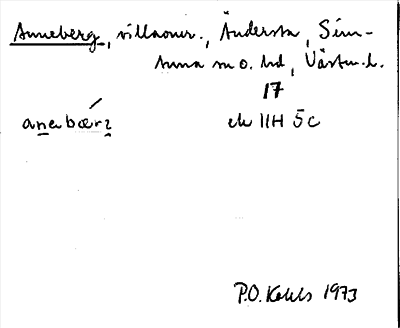 Anneberg, villaomr., Åndersta, Sim-
tuna m o. hd, Västm.l.
17
anebær
ek 11H 5c
P.O. Kells 1973